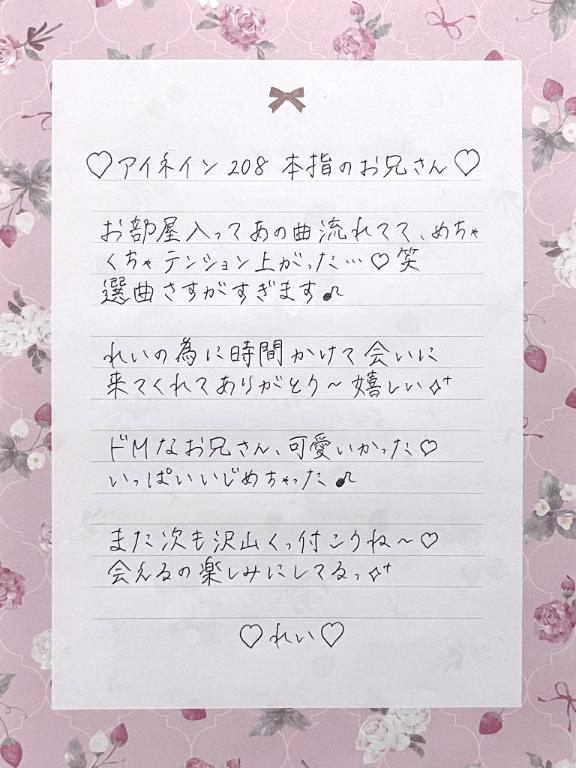 ♡アイネイン 208 本指のお兄さん♡
お部屋入ってあの曲流れてて、めちゃ
くちゃテンション上がった…♡笑
選曲さすがすぎます♪
れいの為に時間かけて会いに
来てくれてありがとう〜嬉しい✧⁺
ドMなお兄さん、可愛いかった♡
いっぱいいじめちゃった♪
また次も沢山くっ付こうね〜♡
会えるの楽しみにしてるっ✧⁺
♡れい♡